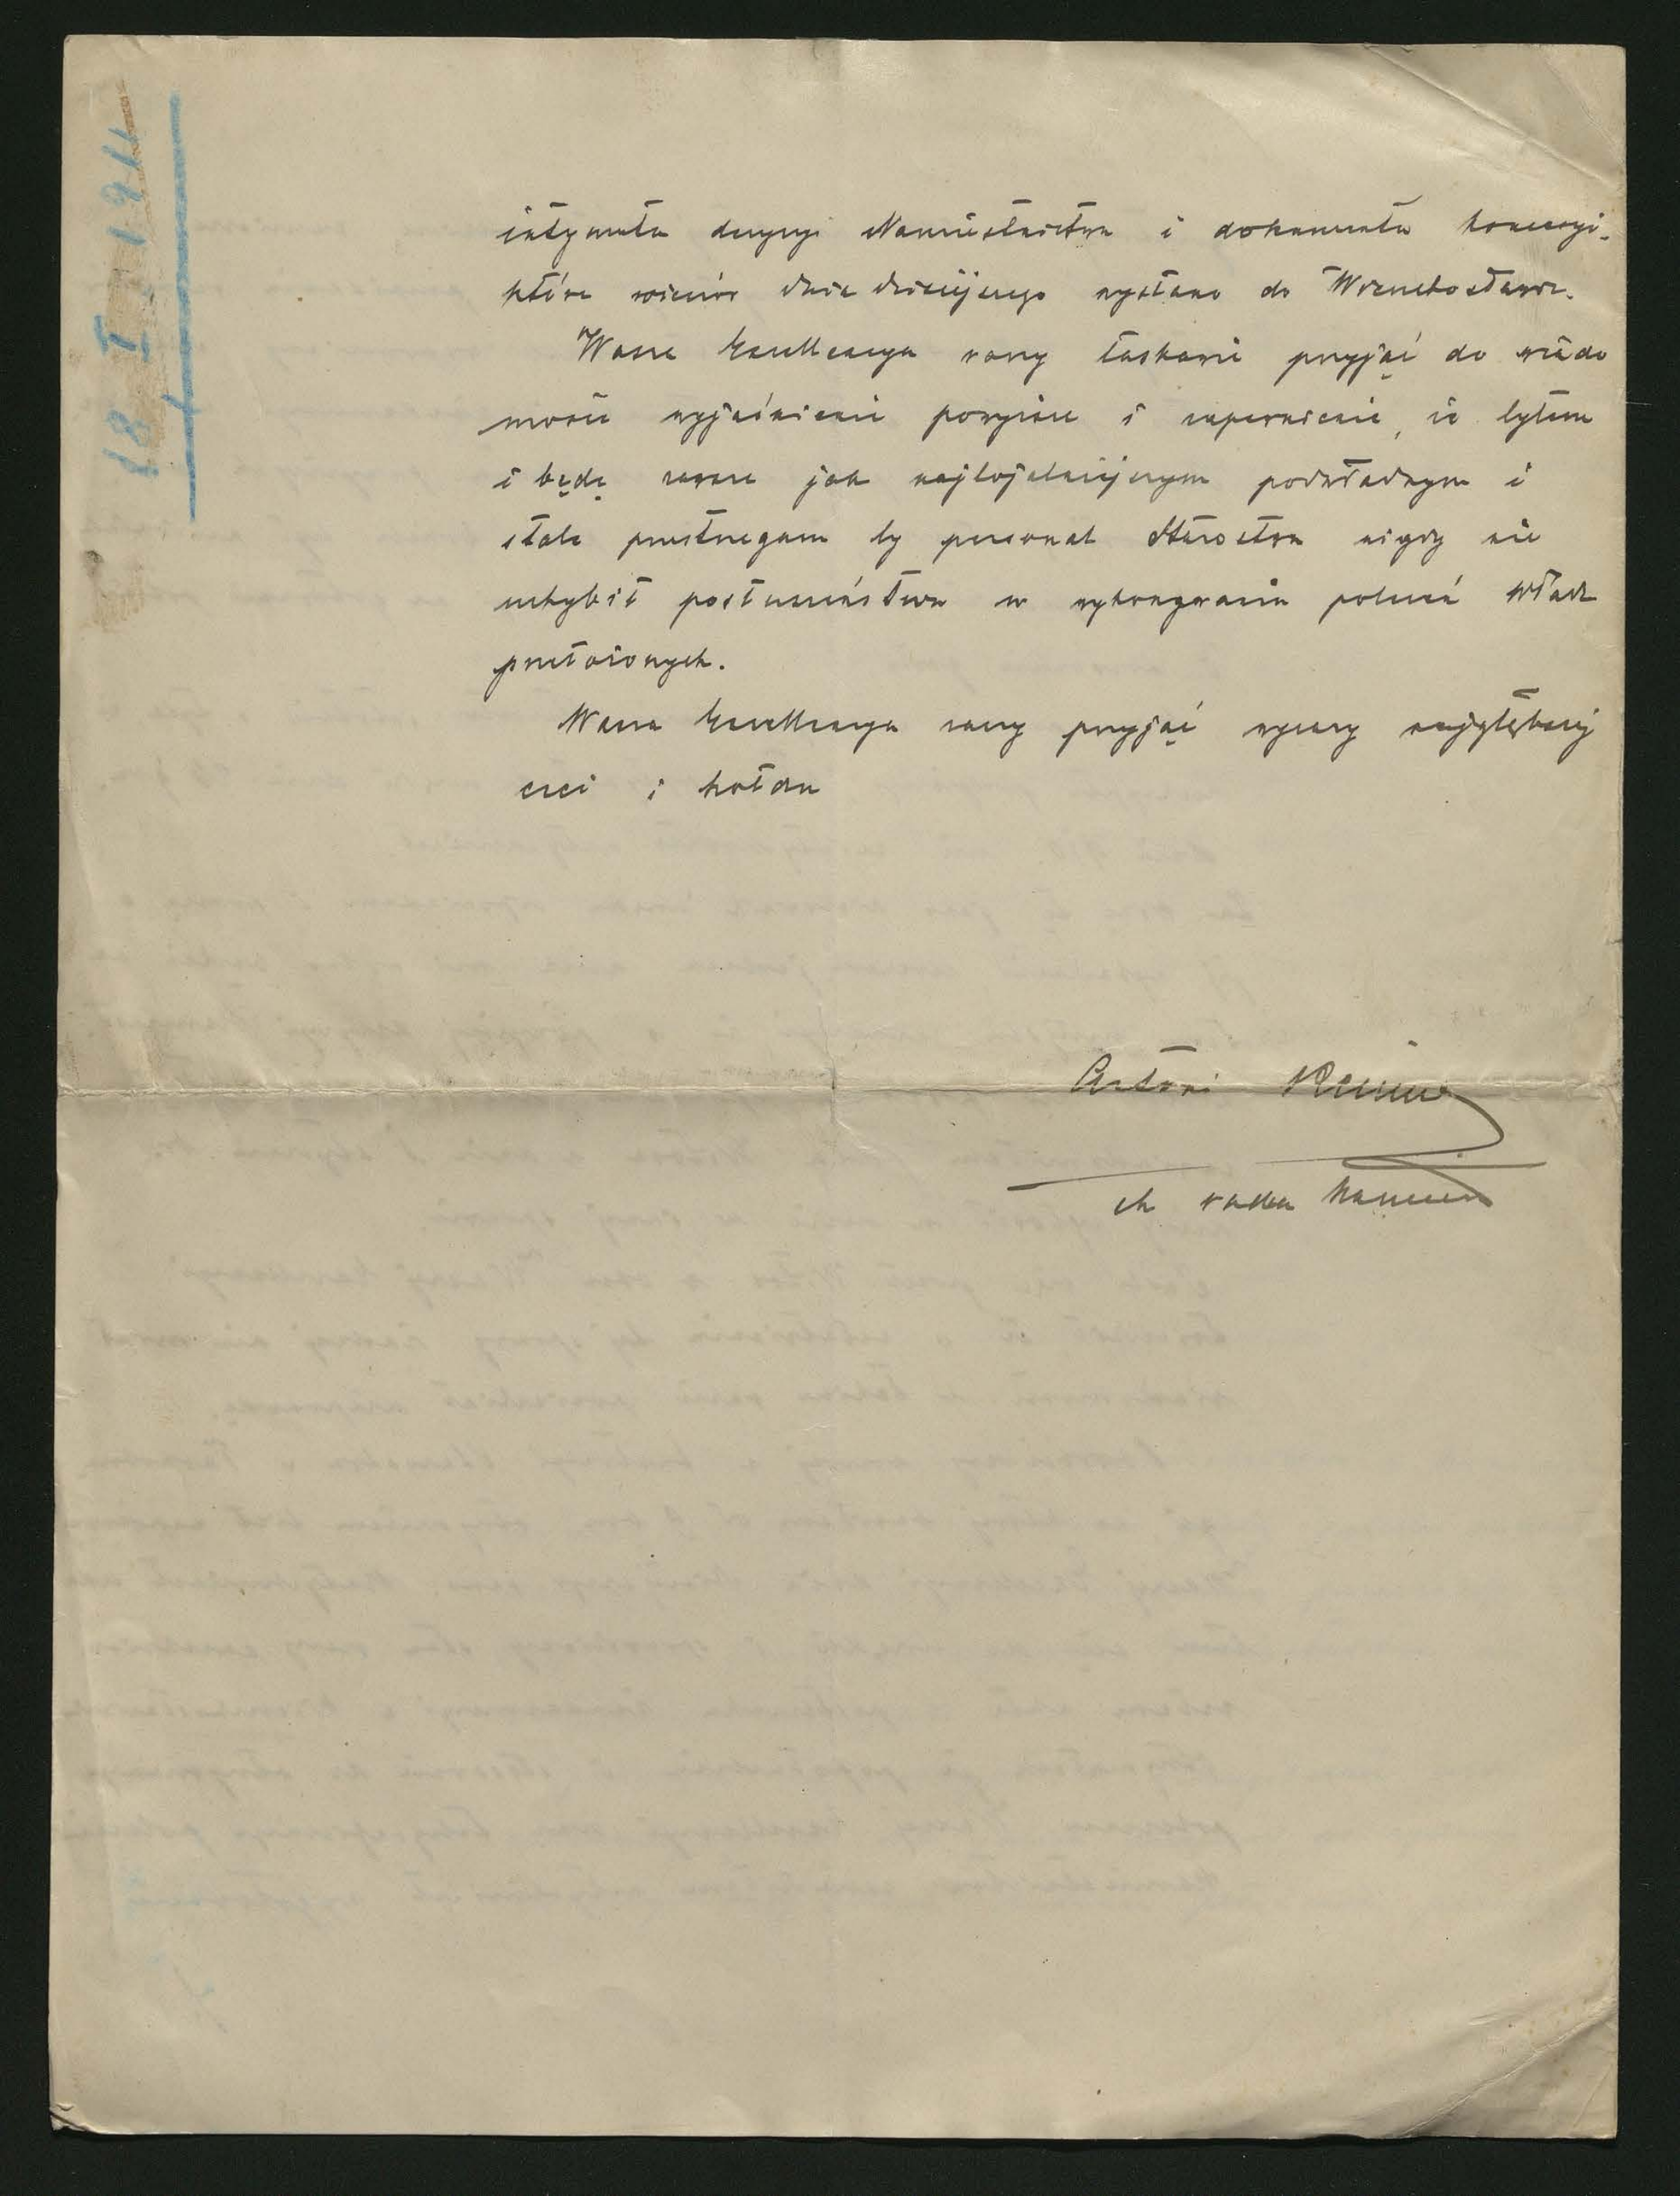 18 I 1911
intymata decyzyi Namiestnictwa i dokumenta koncesyi,
które wieczór dnia dzisiejszego wysłano do
Wasza Excellencya raczy łaskawie przyjąć do wiado
mości wyjaśnienie powyższe i zapewnienie, że byłem
i będę zawsze jak najlojalniejszym podwładnym i
stale przestrzegam by personal Starostwa nigdy nie
uchybił posłuszeństwu w wykonywaniu poleceń władz
przełożonych.
Wasza Excellencya raczy przyjąć wyrazy najgłębszej
czci i hołdu
Antoni
ck radca